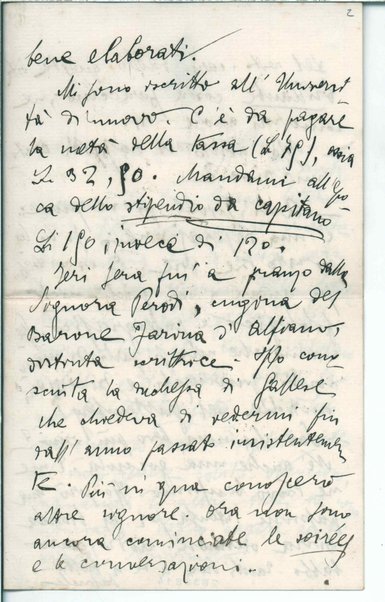 2
bene elaborati.
Mi sono iscritto all' Universi
tà di nuovo. C'è da pagare
la metà della tassa (L 75), ossia
L. 37,50. Mandami all'epo
ca dello stipendio da capitano
L. 150, invece di 120.
Ieri sera fui a pranzo dalla
Signora Perodi, cugina del
Barone Farina di Alfiano,
distinta scrittrice. Ho cono
sciuta la duchessa di Gallese
che chiedeva di vedermi fin
dall' anno passato insistentemen
te. Più in qua conoscerò
altre signore. Ora non sono
ancora cominciate le soirées
e le conversazioni.